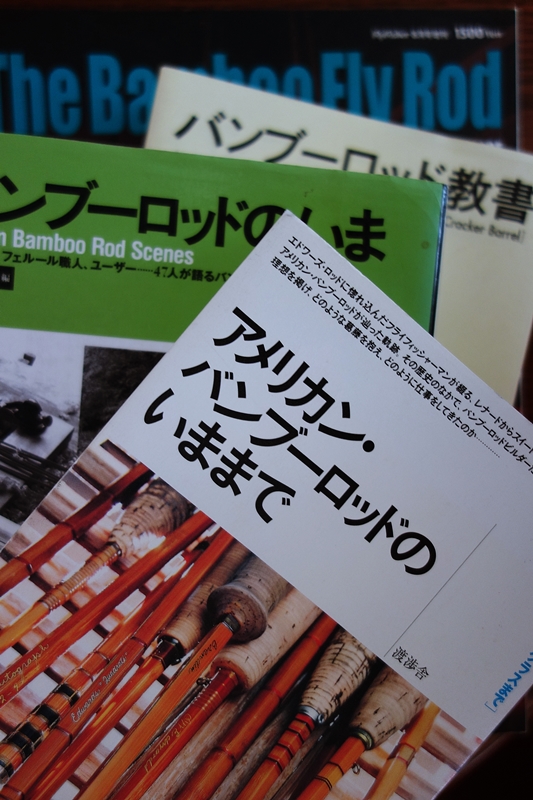 1500
The Bamboo Fly Rod
バンブーロッド教書
Cracker Barrel]
ンブーロッドのいま
n Bamboo Rod Scenes
フェルール職人、ユーザー──47人が語るバン
編
エドワーズ・ロッドに惚れ込んだフライフィッシャーマンが綴る、レナードからスイー
アメリカン・バンブーロッドが辿った軌跡。その歴史のなかで、バンブーロッドビルダー
理想を掲げ、どのような葛藤を抱え、どのように仕事をしてきたのか………
アメリカン・
バンブーロッドの
いままで
渡渉舎